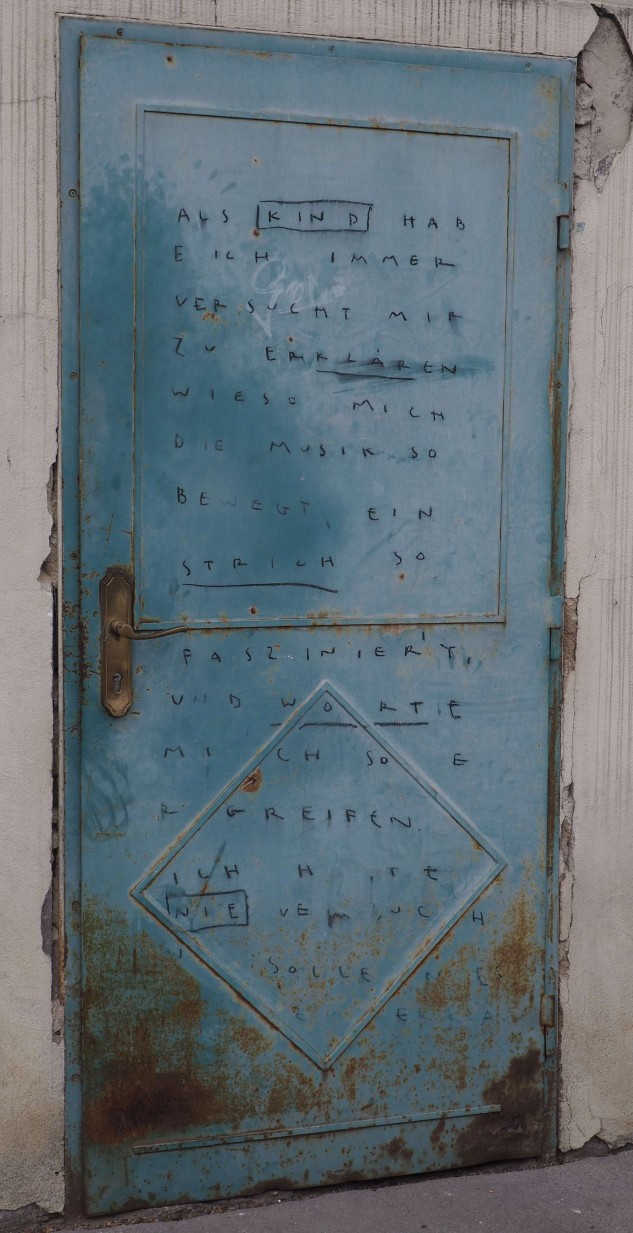 ALS KIND HAB
E ICH IMMER
VERSUCHT MIR
ZU ERKLÄREN
WIESO MICH
DIE MUSIK SO
BEWEGT, EIN
STRICH SO
FASZINIERT,
UND WORTE
MICH SO E
RGREIFEN.
ICH
NIE VERSUCH
SOLLEN